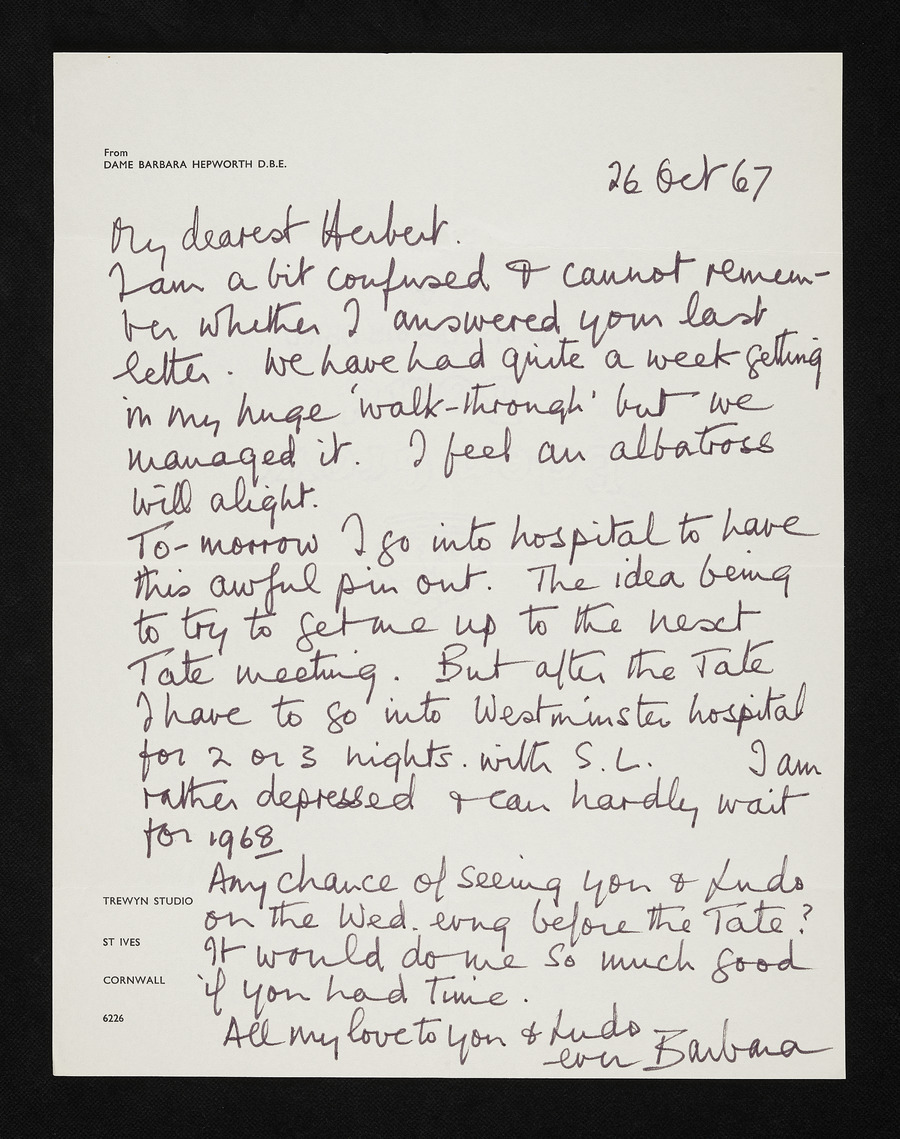 From
DAME BARBARA HEPWORTH D.B.E.
26 Oct 67
My dearest Herbert.
I am a bit confused & cannot remem-
ber whether I answered your last
letter. We have had quite a week getting
in my huge 'walk-through' but we
managed it. I feel an albatross
will alight.
To-morrow I go into hospital to have
this awful pin out. The idea being
to try to get me up to the next
Tate meeting. But after the Tate
I have to go into Westminster hospital
for 2 or 3 nights. with S.L. I am
rather depressed & can hardly wait
for 1968
Any chance of seeing you & Ludo
on the Wed. evng before the Tate?
It would do me so much good
if you had time.
All my love to you & Ludo
ever Barbara
TREWYN STUDIO
ST IVES
CORNWALL
6226